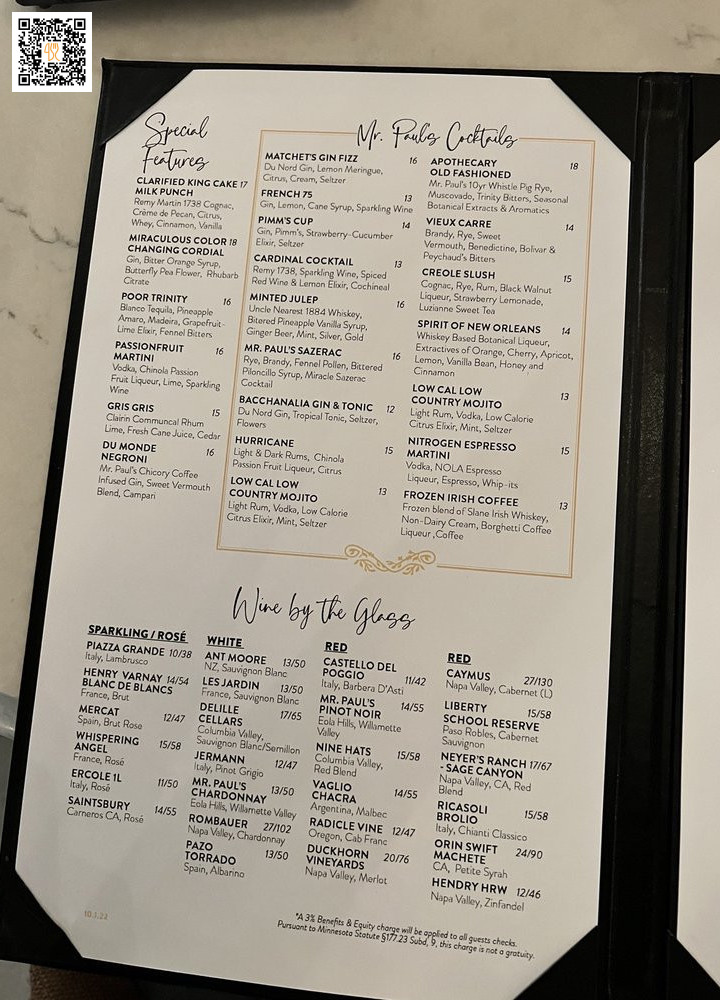 Special
Features
CLARIFIED KING CAKE 17
MILK PUNCH
Remy Martin 1738 Cognac,
Crème de Pecan, Citrus,
Whey, Cinnamon, Vanilla
MIRACULOUS COLOR 18
CHANGING CORDIAL
Gin, Bitter Orange Syrup,
Butterfly Pea Flower, Rhubarb
Citrate
POOR TRINITY 16
Blanco Tequila, Pineapple
Amaro, Madeira, Grapefruit-
Lime Elixir, Fennel Bitters
PASSIONFRUIT 16
MARTINI
Vodka, Chinola Passion
Fruit Liqueur, Lime, Sparkling
Wine
GRIS GRIS 15
Clairin Communcal Rhum
Lime, Fresh Cane Juice, Cedar
DU MONDE 16
NEGRONI
Mr. Paul's Chicory Coffee
Infused Gin, Sweet Vermouth
Blend, Campari
Mr. Paul's Cocktails
MATCHET'S GIN FIZZ 16
Du Nord Gin, Lemon Meringue,
Citrus, Cream, Seltzer
FRENCH 75 13
Gin, Lemon, Cane Syrup, Sparkling Wine
PIMM'S CUP 14
Gin, Pimm's, Strawberry-Cucumber
Elixir, Seltzer
CARDINAL COCKTAIL 13
Remy 1738, Sparkling Wine, Spiced
Red Wine & Lemon Elixir, Cochineal
MINTED JULEP 16
Uncle Nearest 1884 Whiskey,
Bitered Pineapple Vanilla Syrup,
Ginger Beer, Mint, Silver, Gold
MR. PAUL'S SAZERAC 16
Rye, Brandy, Fennel Pollen, Bittered
Piloncillo Syrup, Miracle Sazerac
Cocktail
BACCHANALIA GIN & TONIC 12
Du Nord Gin, Tropical Tonic, Seltzer,
Flowers
HURRICANE 15
Light & Dark Rums, Chinola
Passion Fruit Liqueur, Citrus
LOW CAL LOW 13
COUNTRY MOJITO
Light Rum, Vodka, Low Calorie
Citrus Elixir, Mint, Seltzer
APOTHECARY 18
OLD FASHIONED
Mr. Paul's 10yr Whistle Pig Rye,
Muscovado, Trinity Bitters, Seasonal
Botanical Extracts & Aromatics
VIEUX CARRE 14
Brandy, Rye, Sweet
Vermouth, Benedictine, Bolivar &
Peychaud's Bitters
CREOLE SLUSH 15
Cognac, Rye, Rum, Black Walnut
Liqueur, Strawberry Lemonade,
Luzianne Sweet Tea
SPIRIT OF NEW ORLEANS 14
Whiskey Based Botanical Liqueur,
Extractives of Orange, Cherry, Apricot,
Lemon, Vanilla Bean, Honey and
Cinnamon
LOW CAL LOW 13
COUNTRY MOJITO
Light Rum, Vodka, Low Calorie
Citrus Elixir, Mint, Seltzer
NITROGEN ESPRESSO 15
MARTINI
Vodka, NOLA Espresso
Liqueur, Espresso, Whip-its
FROZEN IRISH COFFEE 13
Frozen blend of Slane Irish Whiskey,
Non-Dairy Cream, Borghetti Coffee
Liqueur ,Coffee
Wine by the Glass
SPARKLING / ROSÉ
PIAZZA GRANDE 10/38
Italy, Lambrusco
HENRY VARNAY 14/54
BLANC DE BLANCS
France, Brut
MERCAT 12/47
Spain, Brut Rose
WHISPERING 15/58
ANGEL
France, Rosé
ERCOLE 1L 11/50
Italy, Rosé
SAINTSBURY 14/55
Carneros CA, Rosé
WHITE
ANT MOORE 13/50
NZ, Sauvignon Blanc
LES JARDIN 13/50
France, Sauvignon Blanc
DELILLE 17/65
CELLARS
Columbia Valley,
Sauvignon Blanc/Semillon
JERMANN 12/47
Italy, Pinot Grigio
MR. PAUL'S 13/50
CHARDONNAY
Eola Hills, Willamette Valley
ROMBAUER 27/102
Napa Valley, Chardonnay
PAZO 13/50
TORRADO
Spain, Albarino
RED
CASTELLO DEL
POGGIO 11/42
Italy, Barbera D'Asti
MR. PAUL'S 14/55
PINOT NOIR
Eola Hills, Willamette
Valley
NINE HATS 15/58
Columbia Valley,
Red Blend
VAGLIO 14/55
CHACRA
Argentina, Malbec
RADICLE VINE 12/47
Oregon, Cab Franc
DUCKHORN 20/76
VINEYARDS
Napa Valley, Merlot
RED
CAYMUS 27/130
Napa Valley, Cabernet (L)
LIBERTY 15/58
SCHOOL RESERVE
Paso Robles, Cabernet
Sauvignon
NEYER'S RANCH 17/67
- SAGE CANYON
Napa Valley, CA, Red
Blend
RICASOLI 15/58
BROLIO
Italy, Chianti Classico
ORIN SWIFT 24/90
MACHETE
CA, Petite Syrah
HENDRY HRW 12/46
Napa Valley, Zinfandel
10.1.22
*A 3% Benefits & Equity charge will be applied to all guests checks.
Pursuant to Minnesota Statute §177.23 Subd, 9, this charge is not a gratuity.